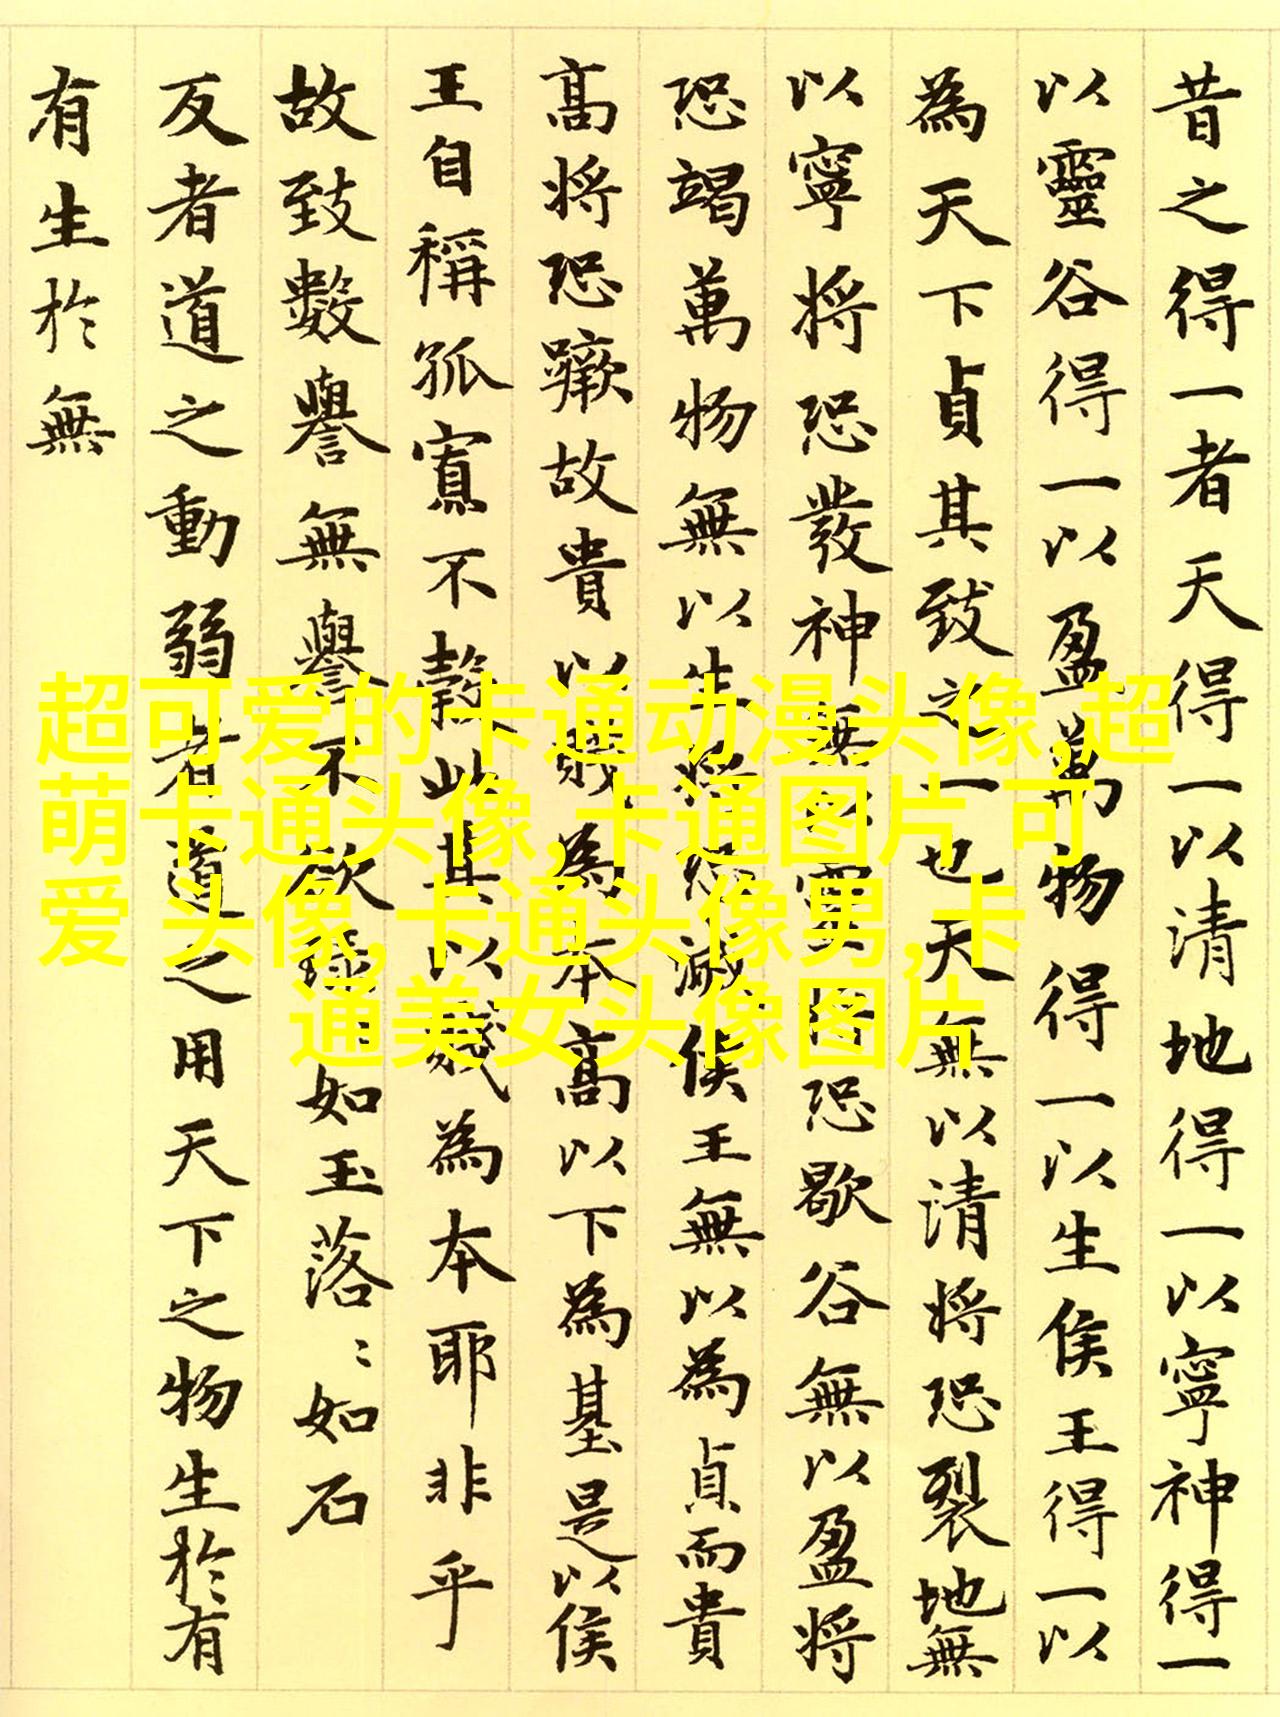 昔之得一者天得一以清地得一以寧神得一
以靈谷得一以盈萬物得一以生侯王得一以
為天下貞其致之一也天無以清將恐裂地無
以寧將恐發神無以靈將恐歇谷無以盈將
恐竭萬物無以生將恐滅侯王無以為貞而貴
高將恐蹶故貴以賤為本高以下為基是以侯
王自稱孤寡不穀此其以賤為本耶非乎
故致數譽無譽不欲琭〻如玉落〻如石
反者道之動弱者道之用天下之物生於有
有生於無
超可爱的卡通动漫头像,超
萌卡通头像,卡通图片 可
爱 头像,卡通头像男,卡
通美女头像图片